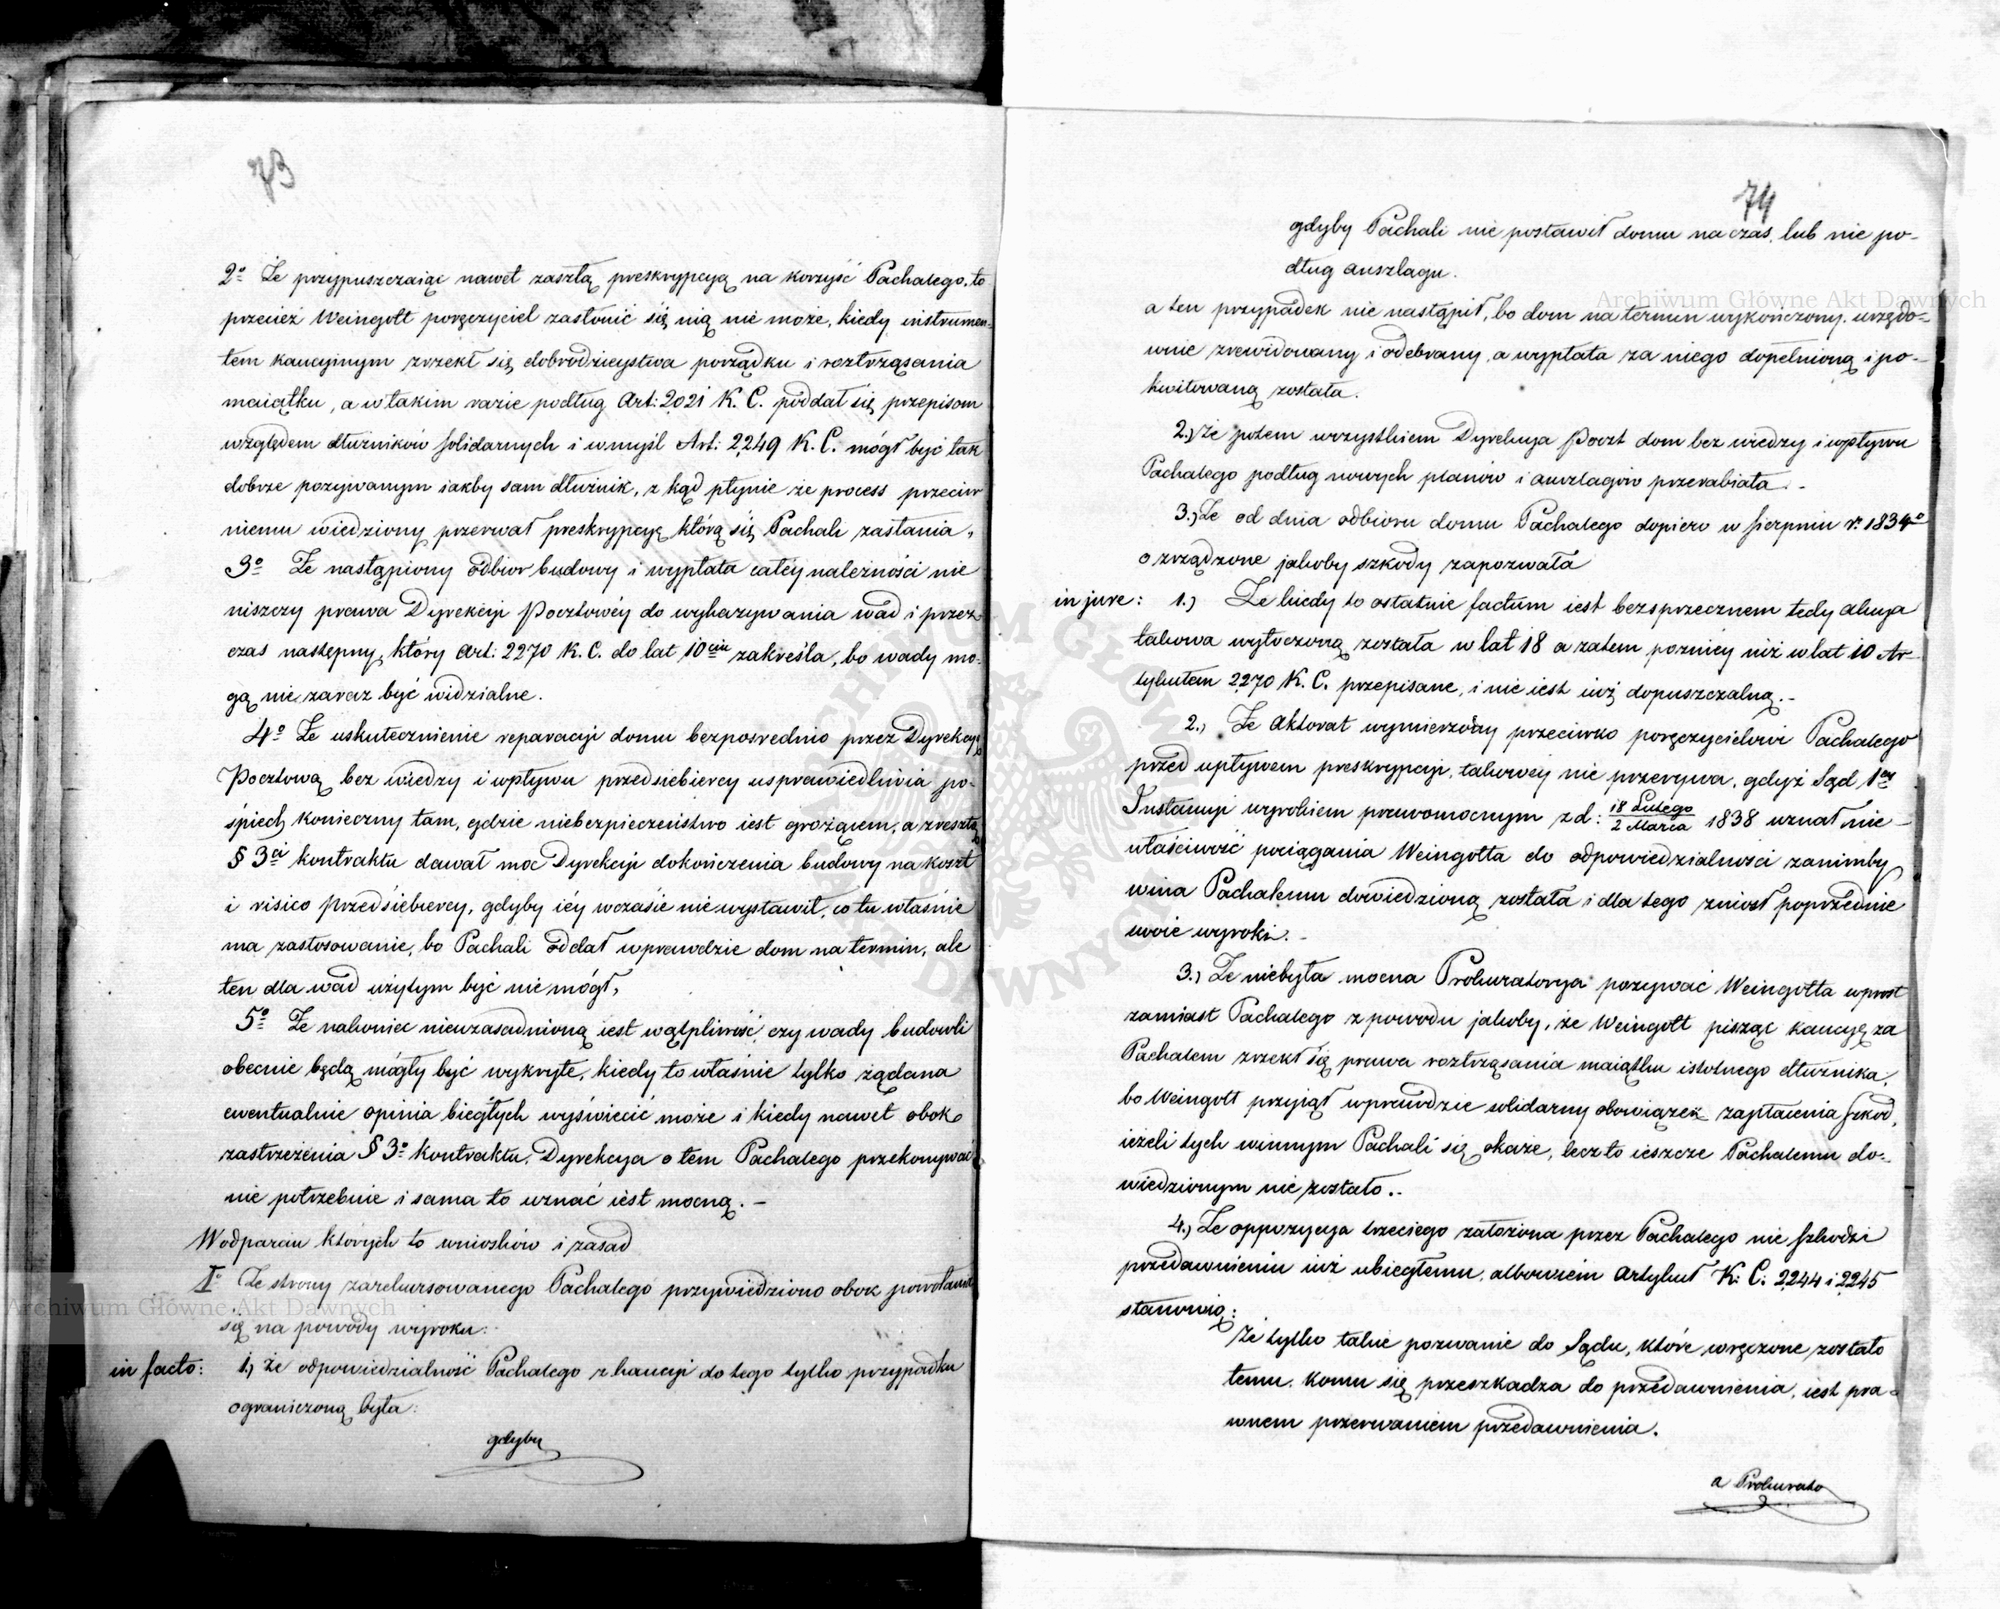 73
2o Że przypuszczaiąc nawet zaszłą preskrypcyą na korzyść Pachalego, to
przecież Weingott poręczyciel zasłonić się nią nie może, kiedy instrumen-
tem kaucyinym zrzekł się dobrodzieystwa porządku i roztrząsania
maiątku, a w takim razie podług Art: 2021 K. C. poddał się przepisom
względem dłużników solidarnych i w myśl Art: 2249 K. C. mógł być tak
dobrze pozywanym iakby sam dłużnik, z kąd płynie że process przeciw
niemu wiedziony przerwał preskrypcyę którą się Pachali zasłania,
3o Że nastąpiony odbiór budowy i wypłata całéy należności nie
niszczy prawa Dyrekcji Pocztowéy do wykazywania wad i przez
czas następny, który Art: 2270 K. C. do lat 10ciu zakreśla, bo wady mo-
gą nie zaraz być widzialne.
4o Że uskutecznienie reparacji domu bezpośrednio przez Dyrekcyę
Pocztową bez wiedzy i wpływu przedsiębiercy usprawiedliwia po-
śpiech konieczny tam, gdzie niebezpieczeństwo iest grożącem, a zresztą
§ 3ci kontraktu dawał moc Dyrekcji dokończenia budowy na koszt
i risico przedsiębiercy, gdyby iéy w czasie nie wystawił, co tu właśnie
ma zastosowanie, bo Pachali oddał wprawdzie dom na termin, ale
ten dla wad użytym być nie mógł,
5o Że nakoniec nieuzasadnioną iest wątpliwość, czy wady budowli
obecnie będą mogły być wykryte, kiedy to właśnie tylko żądana
ewentualnie opinia biegłych wyświecić może i kiedy nawet obok
zastrzeżenia § 3o kontraktu, Dyrekcya o tem Pachalego przekonywać
nie potrzebuie i sama to uznać iest mocną. —
W odparciu których to wniosków i zasad
Io Ze strony zarekursowanego Pachalego przywiedziono obok powołania
się na powody wyroku:
in facto: 1, że odpowiedzialność Pachalego z kaucji do tego tylko przypadku
ograniczoną była:
gdyby
74
gdyby Pachali nie postawił domu na czas, lub nie po-
dług anszlagu.
a ten przypadek nie nastąpił, bo dom na termin wykończony, urzędo-
wnie zrewidowany i odebrany, a wypłata za niego dopełnioną i po-
kwitowaną została.
2.) że potem wszystkiem Dyrekcya Poczt dom bez wiedzy i wpływu
Pachalego podług nowych planów i anszlagów przerabiała. -
3.) Że od dnia odbioru domu Pachalego dopiero w sierpniu r. 1834o
o zrządzone jakoby szkody zapozwała
in jure: 1.) Że kiedy to ostatnie factum iest bezsprzecznem tedy akcya
takowa wytoczoną została w lat 18 a zatem pozniéy niż w lat 10 Ar-
tykułem 2270 K. C. przepisane, i nie iest iuż dopuszczalną. -
2.) Że Aktorat wymierzony przeciwko poręczycielowi Pachalego
przed upływem preskrypcji, takowey nie przerywa, gdyż Sąd 1ey
Instancji wyrokiem prawomocnym z d: 18 Lutego / 2 Marca 1838 uznał nie-
właściwość pociągania Weingotta do odpowiedzialności zanimby
wina Pachalemu dowiedzioną została i dla tego zniosł poprzednie
swoie wyroki. -
3.) Że niebyła mocna Prokuratorya pozywać Weingotta wprost
zamiast Pachalego z powodu jakoby, że Weingott pisząc kaucyę za
Pachalem zrzekł się prawa roztrząsania maiątku istotnego dłużnika,
bo Weingott przyiął wprawdzie solidarny obowiązek zapłacenia szkód,
ieżeli tych winnym Pachali się okaże, lecz to ieszcze Pachalemu do-
wiedzionym nie zostało. -
4.) Że oppozycya trzeciego założona przez Pachalego nie szkodzi
przedawnieniu iuż ubiegłemu, albowiem Artykuł K. C. 2244 i 2245
stanowią:
Że tylko takie pozwanie do Sądu, które wręczone zostało
temu, komu się przeszkadza do przedawnienia, iest pra-
wnem przerwaniem przedawnienia.
a Prokurato
Archiwum Główne Akt Dawnych
Archiwum Główne Akt Dawnych
ARCHIWUM GŁÓWNE AKT DAWNYCH